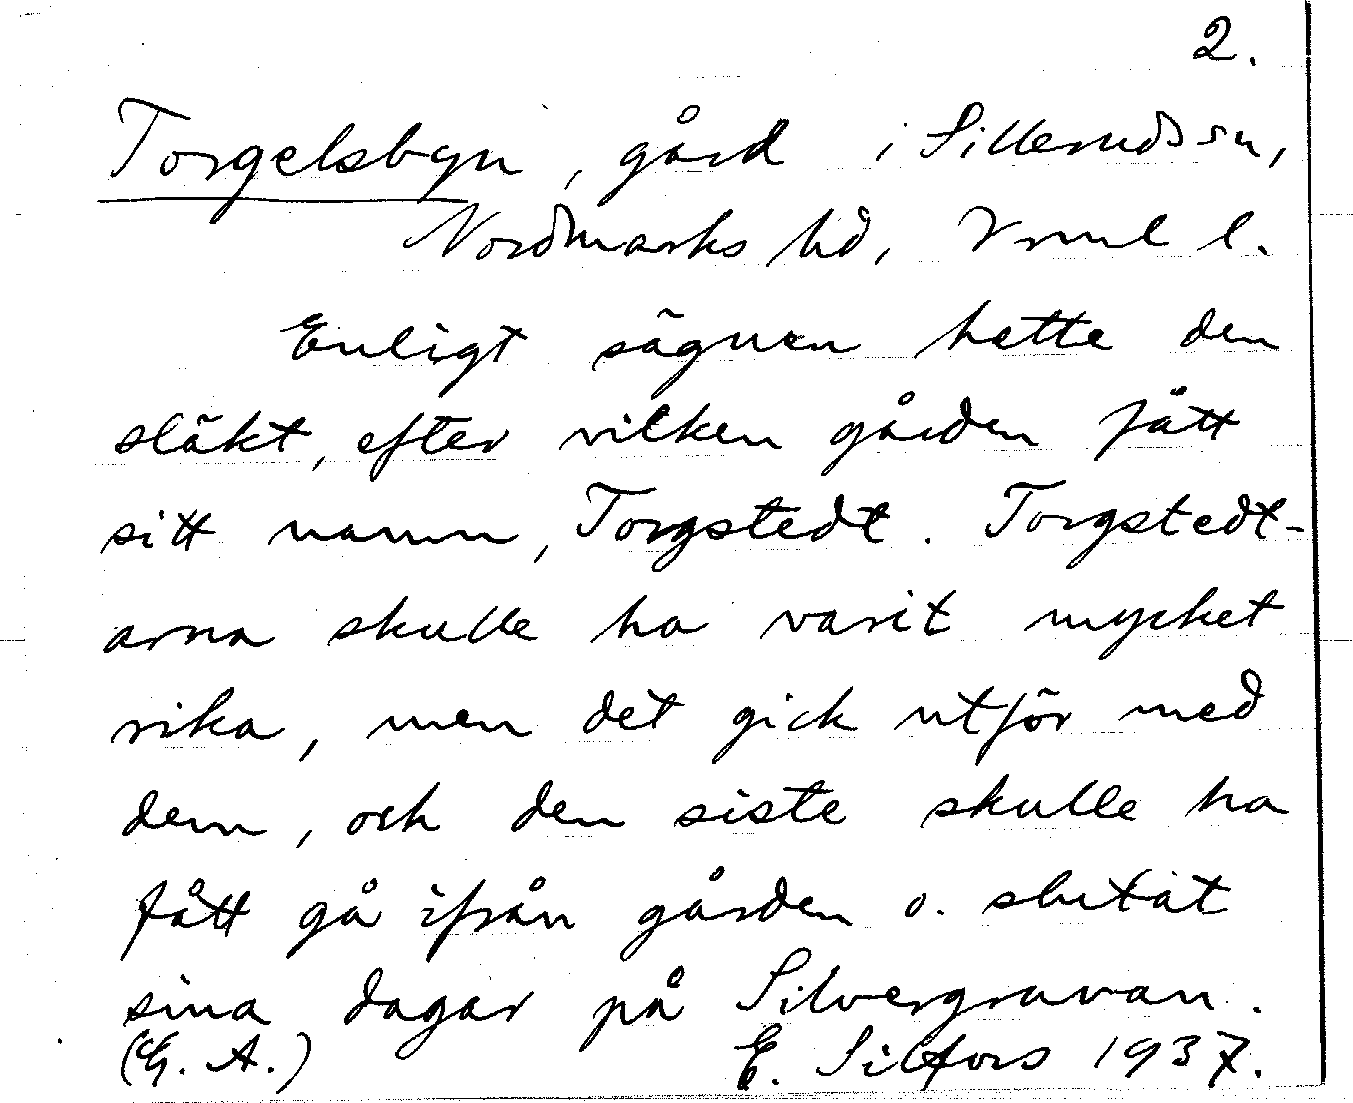 2.
Torgelsbyn, gård i Sillerudssn,
Nordmarks hd, Vrml l.
Enligt sägnen hette den
släkt, efter vilken gården fått
sitt namn, Torgstedt. Torgstedt-
arna skulle ha varit mycket
rika, men det gick utför med
dem, och den siste skulle ha
fått gå ifrån gården o. slutat
sina dagar på Silvergruvan.
(G. A.) E. Silfors 1937.